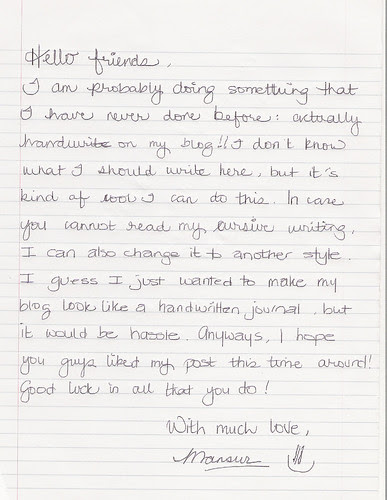 Hello friends,
I am probably doing something that
I have never done before: actually
handwrite on my blog!! I don't know
what I should write here, but it's
kind of cool I can do this. In case
you cannot read my cursive writing,
I can also change it to another style.
I guess I just wanted to make my
blog look like a handwritten journal, but
it would be hassle. Anyways, I hope
you guys liked my post this time around!
Good luck in all that you do!
With much love,
Mansur